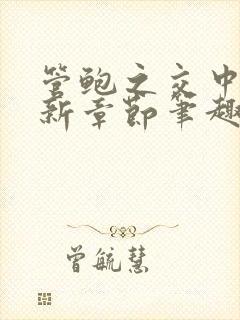 管鲍之交中
新章节笔趣
曾毓慧